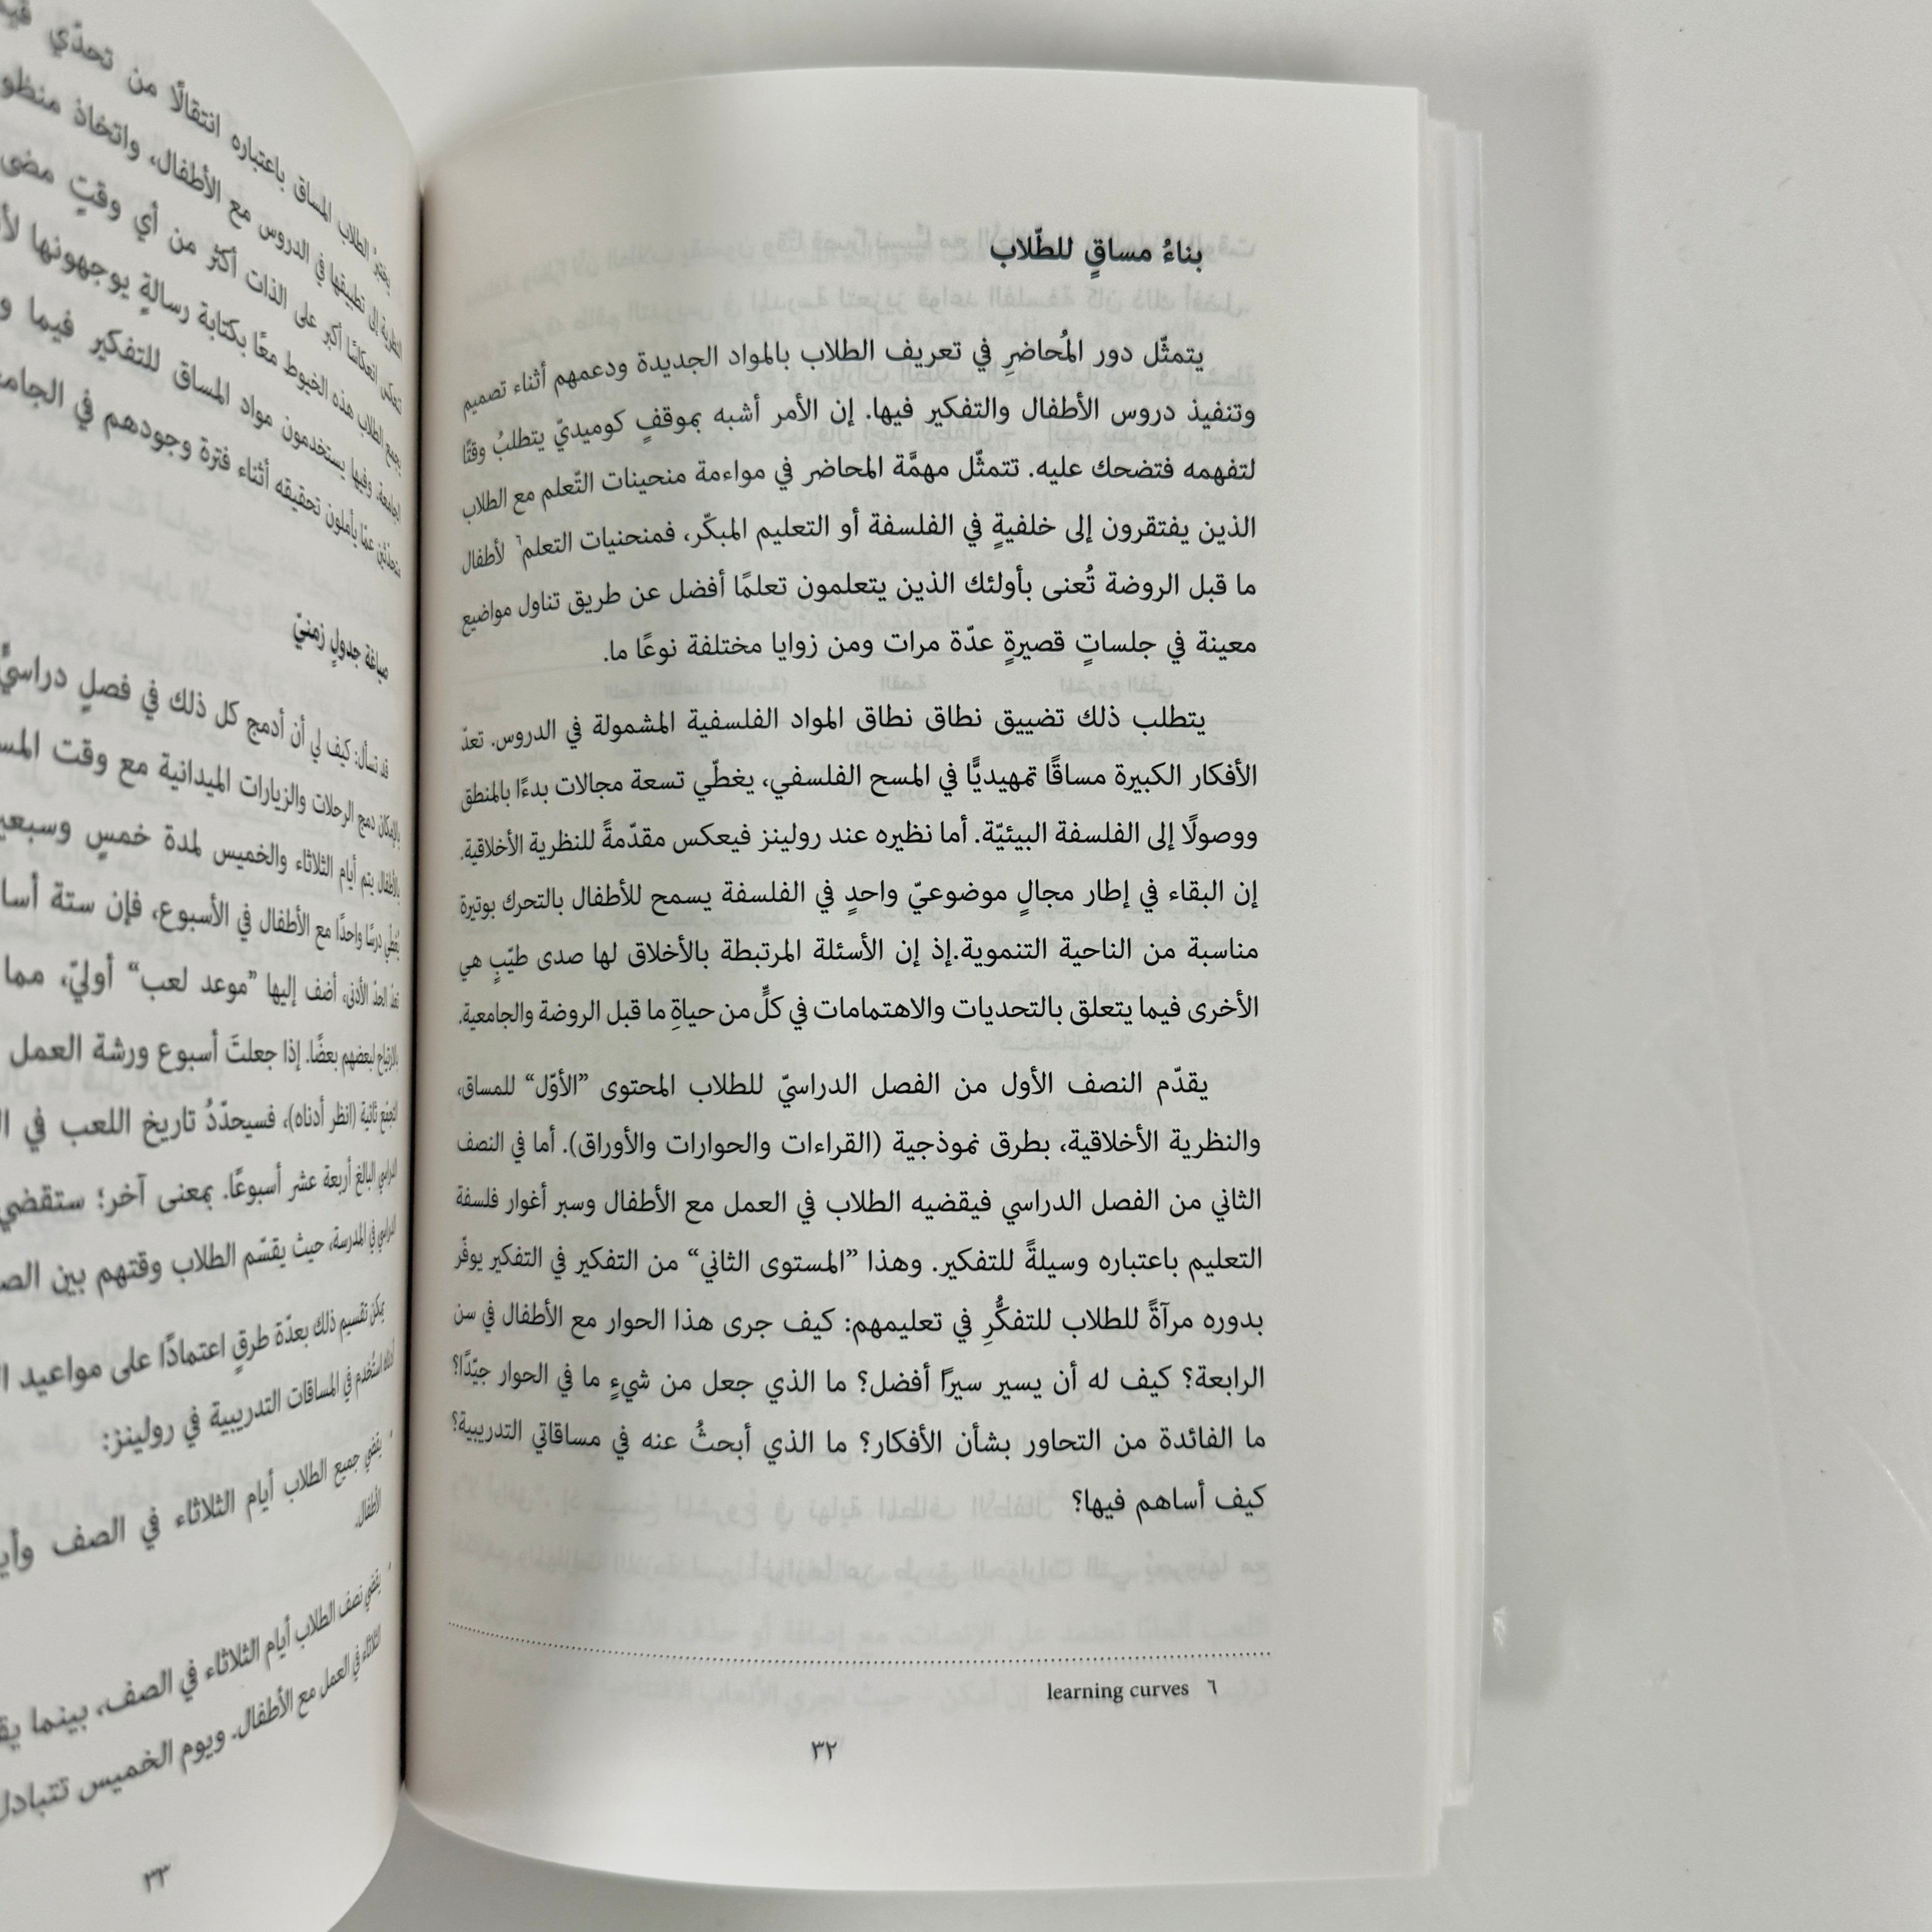 بناءُ مساقٍ للطّلاب
يتمثّل دور المُحاضرِ في تعريف الطلاب بالمواد الجديدة ودعمهم أثناء تصميم
وتنفيذ دروس الأطفال والتفكير فيها. إن الأمر أشبه بموقفٍ كوميديّ يتطلبُ وقتًا
لتفهمه فتضحك عليه. تتمثّل مهمَّة المحاضر في مواءمة منحينات التّعلم مع الطلاب
الذين يفتقرون إلى خلفيةٍ في الفلسفة أو التعليم المبكّر، فمنحنيات التعلم٦ لأطفال
ما قبل الروضة تُعنى بأولئك الذين يتعلمون تعلمًا أفضل عن طريق تناول مواضيع
معينة في جلساتٍ قصيرةٍ عدّة مرات ومن زوايا مختلفة نوعًا ما.
يتطلب ذلك تضييق نطاق نطاق المواد الفلسفية المشمولة في الدروس. تعدّ
الأفكار الكبيرة مساقًا تمهيديًّا في المسح الفلسفي، يغطّي تسعة مجالات بدءًا بالمنطق
ووصولًا إلى الفلسفة البيئيّة. أما نظيره عند رولينز فيعكس مقدّمةً للنظرية الأخلاقية.
إن البقاء في إطار مجالٍ موضوعيّ واحدٍ في الفلسفة يسمح للأطفال بالتحرك بوتيرة
مناسبة من الناحية التنموية.إذ إن الأسئلة المرتبطة بالأخلاق لها صدى طيّبٍ هي
الأخرى فيما يتعلق بالتحديات والاهتمامات في كلٍّ من حياةِ ما قبل الروضة والجامعية.
يقدّم النصف الأول من الفصل الدراسيّ للطلاب المحتوى ”الأوّل“ للمساق،
والنظرية الأخلاقية، بطرق نموذجية (القراءات والحوارات والأوراق). أما في النصف
الثاني من الفصل الدراسي فيقضيه الطلاب في العمل مع الأطفال وسبر أغوار فلسفة
التعليم باعتباره وسيلةً للتفكير. وهذا ”المستوى الثاني“ من التفكير في التفكير يوفّر
بدوره مرآةً للطلاب للتفكُّرِ في تعليمهم: كيف جرى هذا الحوار مع الأطفال في سن
الرابعة؟ كيف له أن يسير سيرًا أفضل؟ ما الذي جعل من شيءٍ ما في الحوار جيّدًا؟
ما الفائدة من التحاور بشأن الأفكار؟ ما الذي أبحثُ عنه في مساقاتي التدريبية؟
كيف أساهم فيها؟
٦ learning curves
٣٢
الطلاب المساق باعتباره انتقالًا من تحدّي
إلى تطبيقها في الدروس مع الأطفال، واتخاذ
انعكاسًا أكبر على الذات أكثر من أي وقتٍ مضى
يجمع الطلاب هذه الخيوط معًا بكتابة رسالةٍ يوجهونها
وفيها يستخدمون مواد المساق للتفكير فيما
عمّا يأملون تحقيقه أثناء فترة وجودهم في
صياغة جدولٍ زمنيّ
قد تسأل: كيف لي أن أدمج كل ذلك في فصلٍ دراسيٍّ
دمج الرحلات والزيارات الميدانية مع وقت
يتم أيام الثلاثاء والخميس لمدة خمسٍ
درسًا واحدًا مع الأطفال في الأسبوع، فإن ستة
الحدّ الأدنى، أضف إليها ”موعد لعب“ أوليّ، مما
لبعضهم بعضًا. إذا جعلتَ أسبوع ورشة العمل
ثانية (انظر أدناه)، فسيحدّدُ تاريخ اللعب في
الدراسي البالغ أربعة عشر أسبوعًا. بمعنى آخر؛ ستقضي
في المدرسة، حيث يقسّم الطلاب وقتهم بين
يمكن تقسيم ذلك بعدّة طرقٍ اعتمادًا على مواعيد
في المساقات التدريبية في رولينز:
يقضي جميع الطلاب أيام الثلاثاء في الصف
الأطفال.
يقضي نصف الطلاب أيام الثلاثاء في الصف، بينما
الثلاثاء في العمل مع الأطفال. ويوم الخميس تتبادل
٣٣